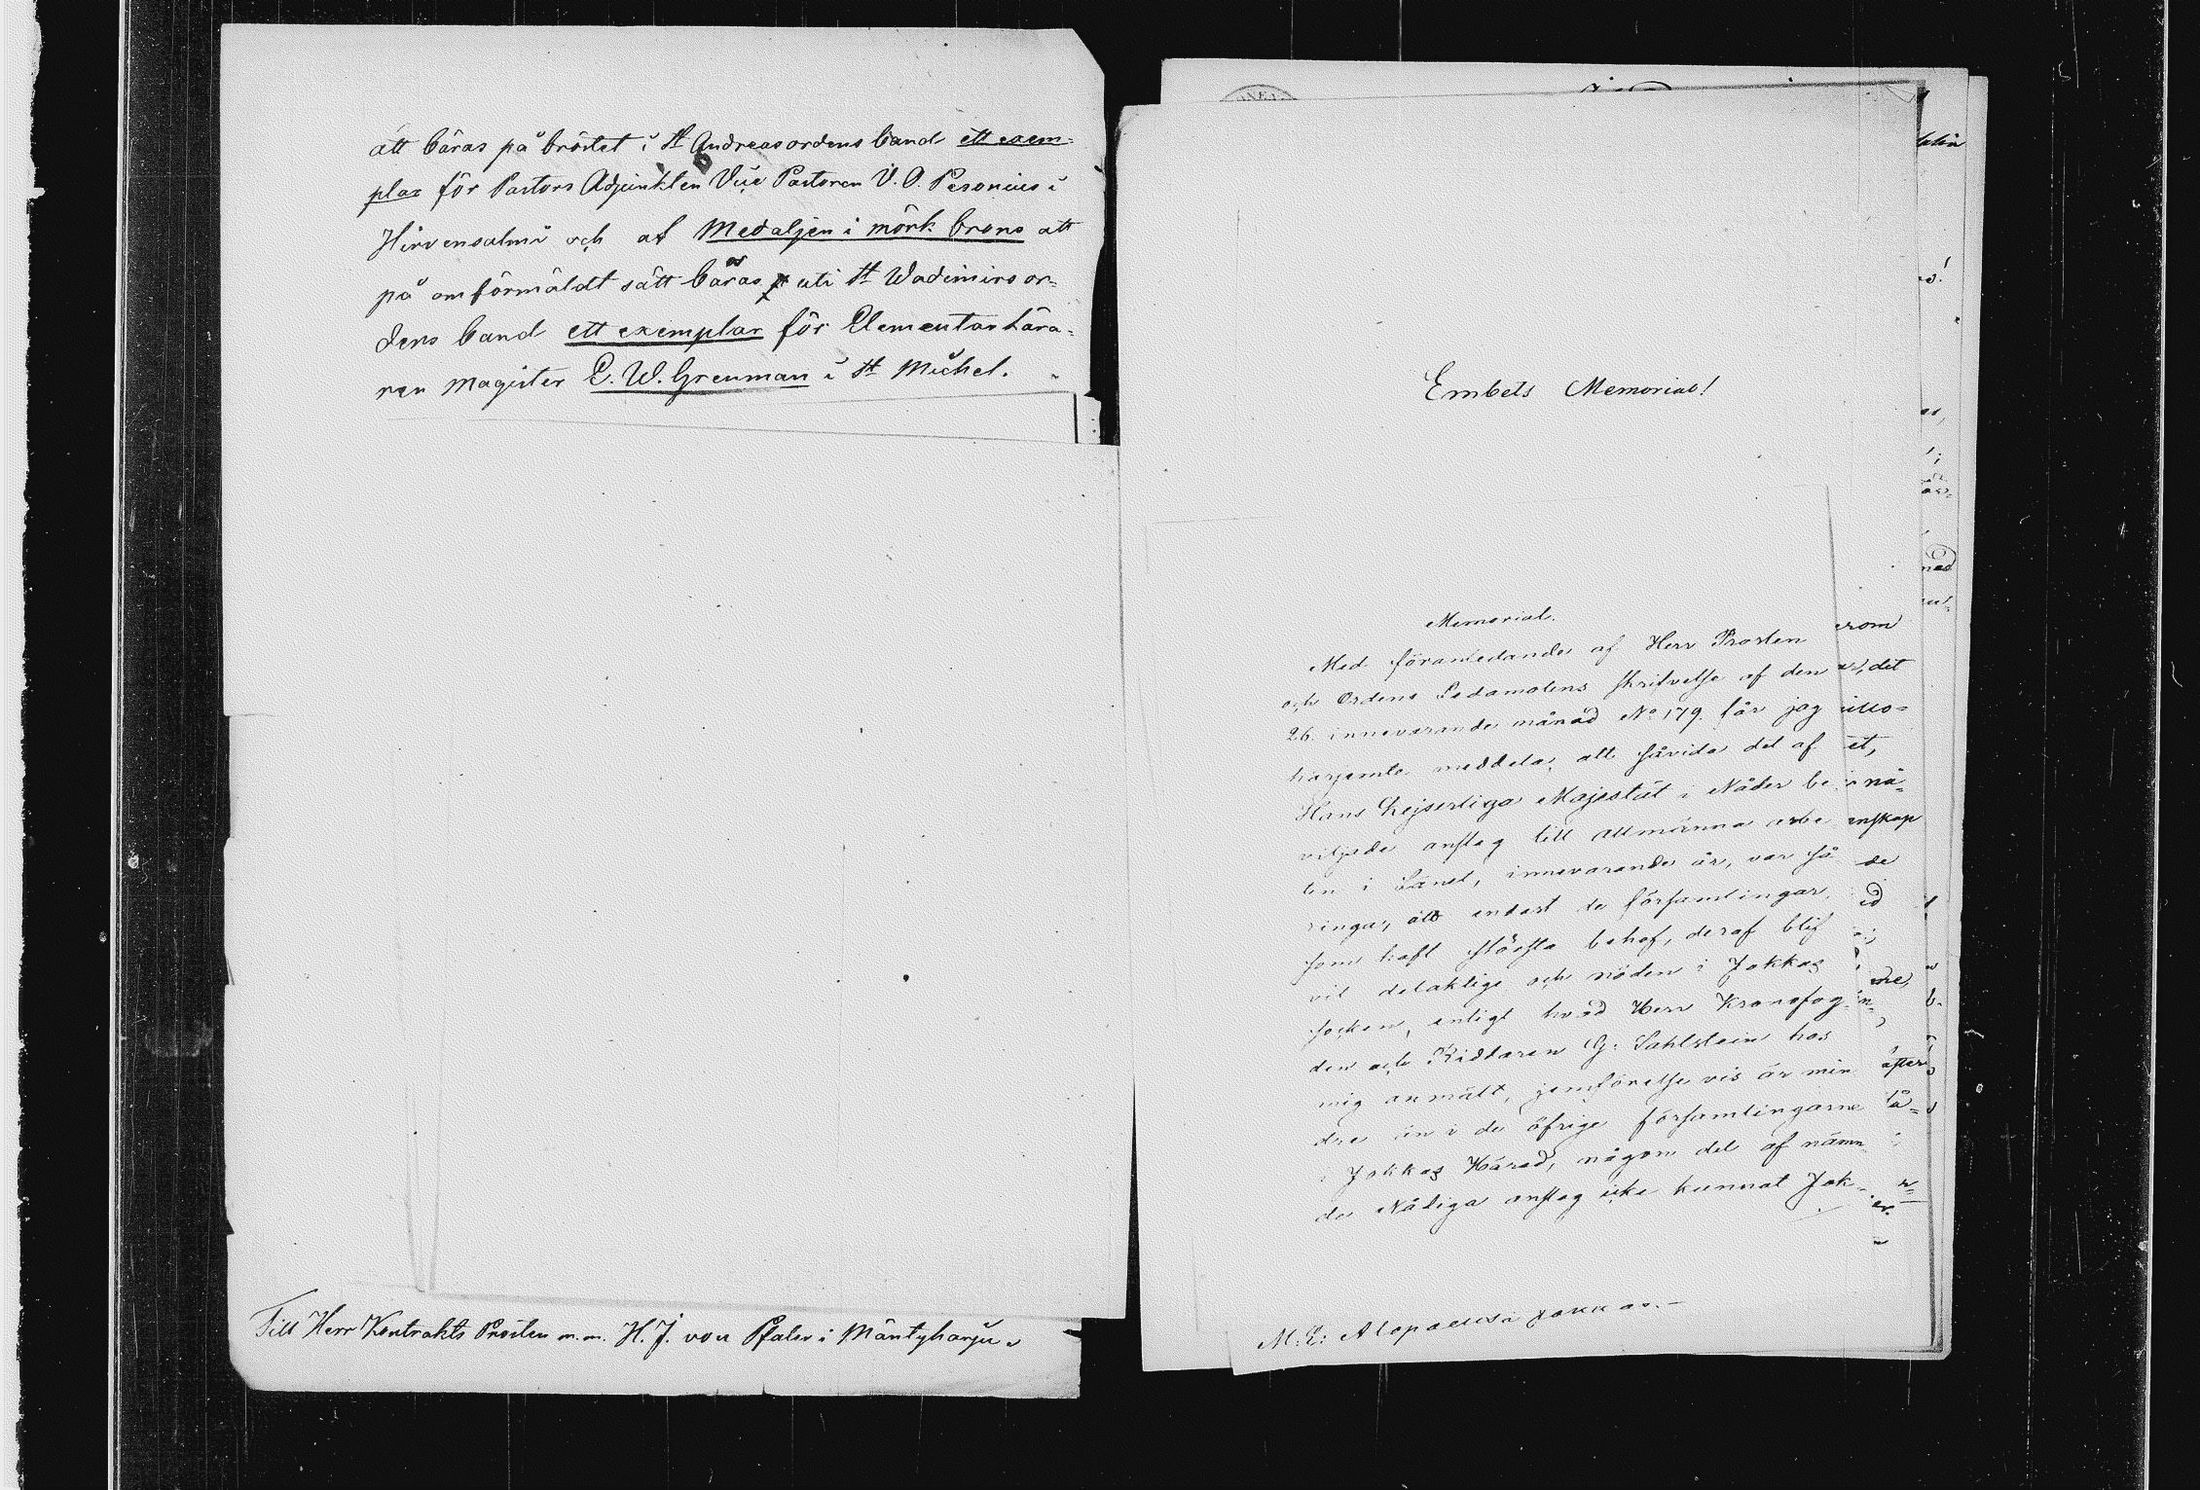 att bäras på bröstet i St Andreasordens band ett exem-
plar för Pastors Adjunkten Vice Pastoren V. O. Pesonius i
Hirvensalmi och af Medaljen i mörk brons att
på omförmäldt sätt bäras uti St Wadimirsor-
dens band ett exemplar för Elementarlära-
ren Magister E. W. Grenman i St Michel.
Till Herr Kontrakts Prosten m.m. H. J. von Pfaler i Mäntyharju.
Embets Memorial!
Memorial.
Med föranledande af Herr Prosten
och Ordens Ledamotens skrifvelse af den
26 innevarande månad No 179. får jag
harjemte meddela, att såvida det af
Hans Kejserliga Majestät i Nåder be-
viljade anslag till allmänna arbe
ten i Länet, innevarande år, var så
ringa, att endast de församlingar,
som haft största behof, deraf blif
vit delaktige och nöden i Jokkas
socken, enligt hvad Herr Kronofog-
den och Riddaren G: Sahlstein hos
mig anmält, jemförelsevis är min
dre än i de öfrige församlingarne
i Jokkas Härad, någon del af nämn
de Nådiga anslag icke kunnat Jok-
M: E: Alopaeus i Jokkas.-